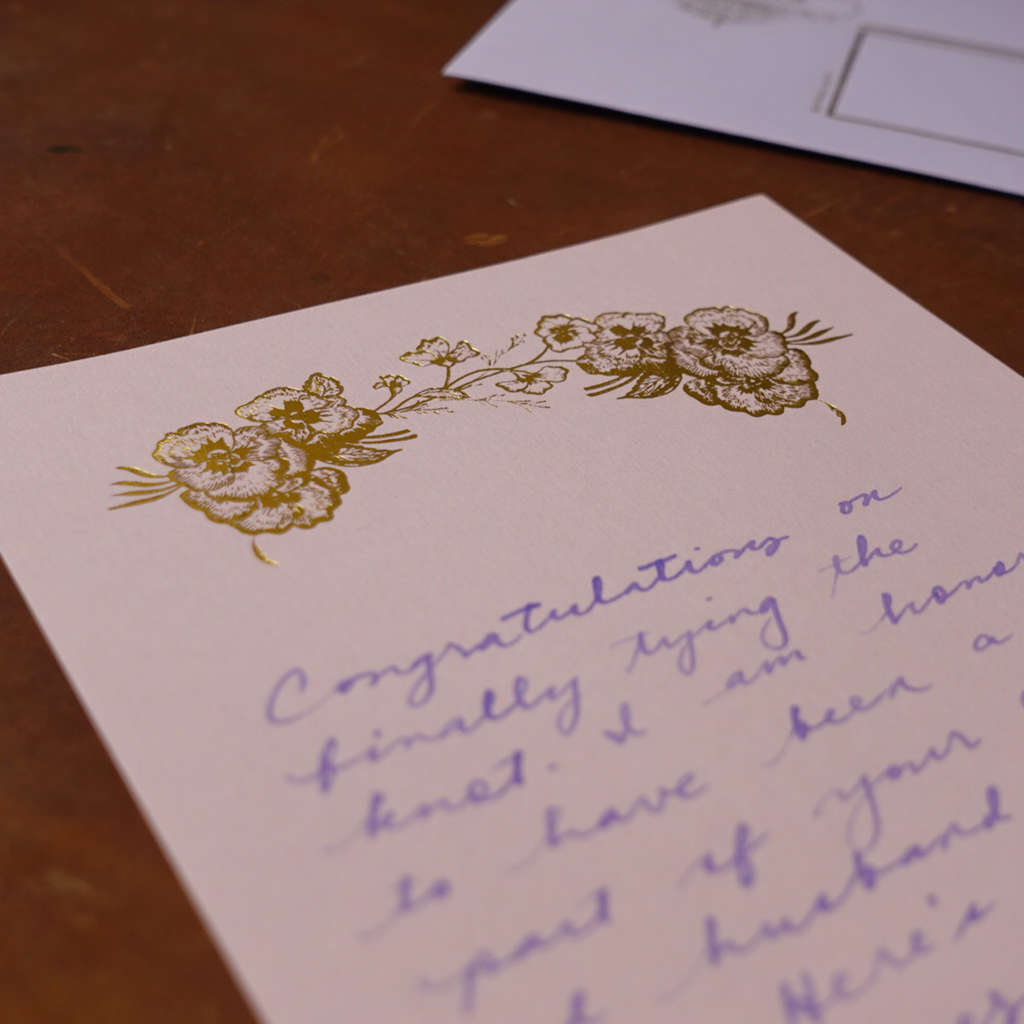 Congratulations on
finally tying the
knot. I am
to have been a
part of your
husband
Here's